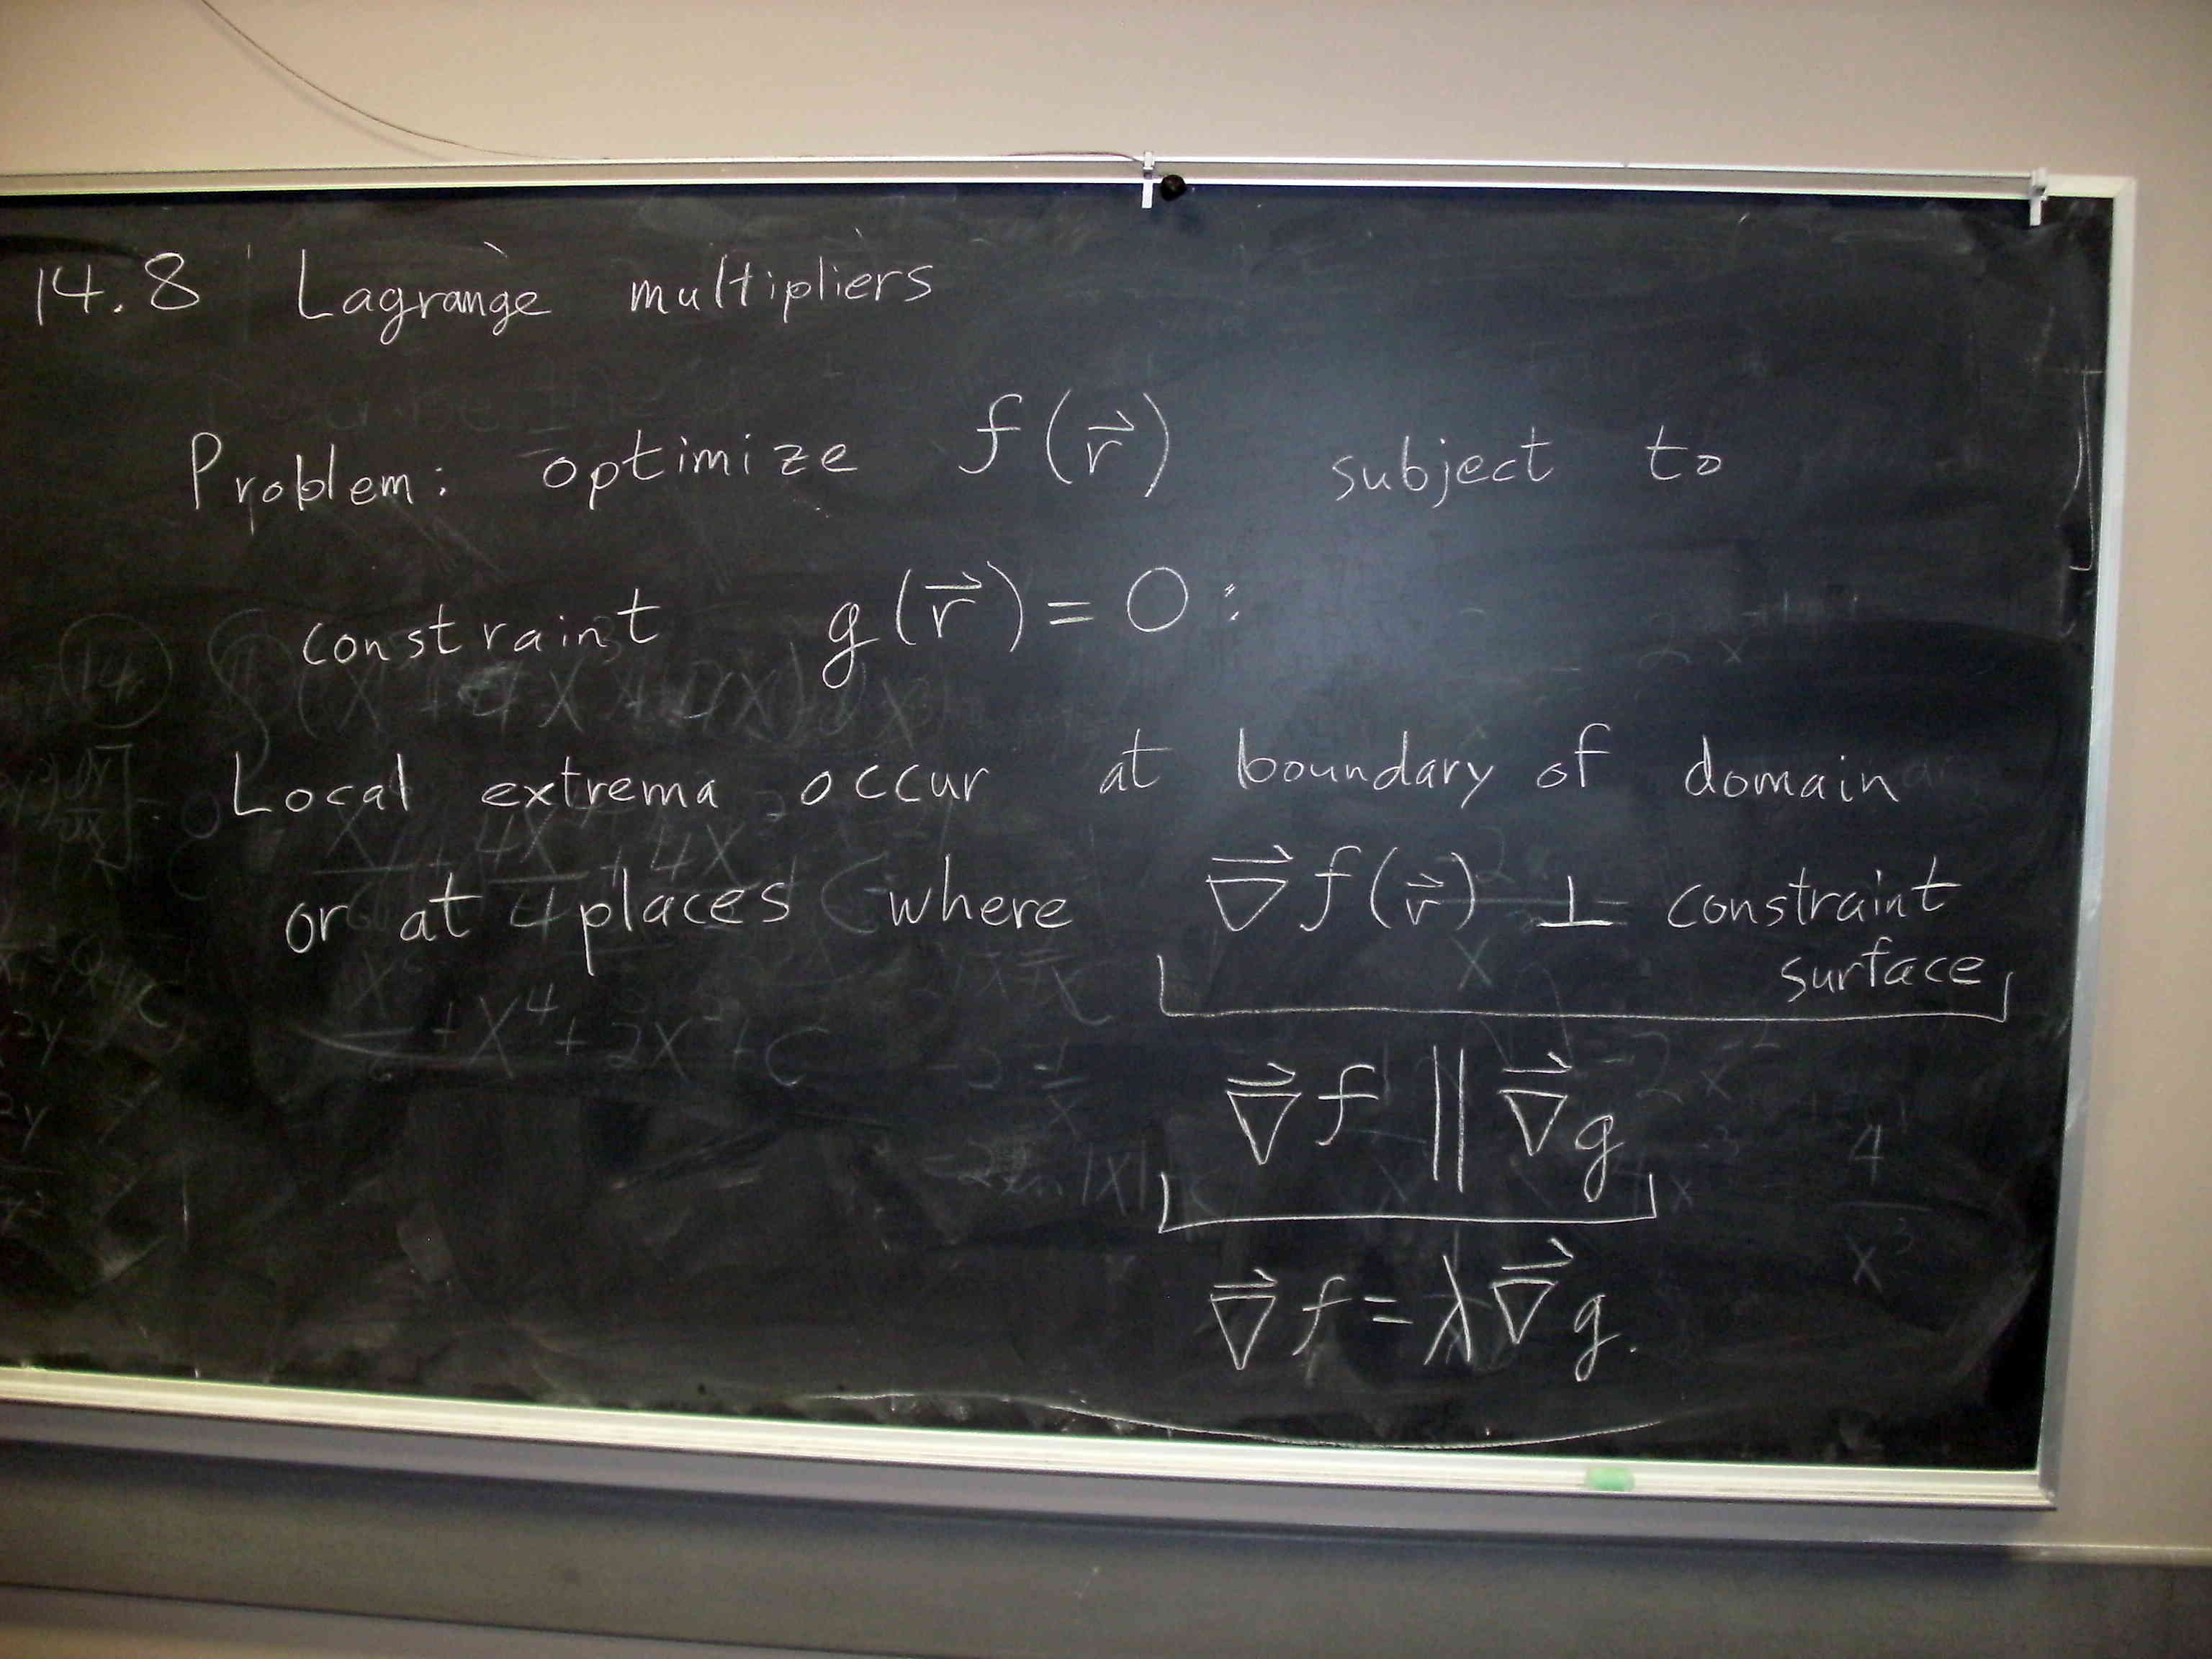 14.8 Lagrange multipliers
Problem: optimize f(r⃗) subject to
constraint g(r⃗) = 0:
Local extrema occur at boundary of domain
or at places where ∇⃗f(r⃗) ⊥ constraint
surface
∇⃗f ∥ ∇⃗g
∇⃗f = λ∇⃗g.